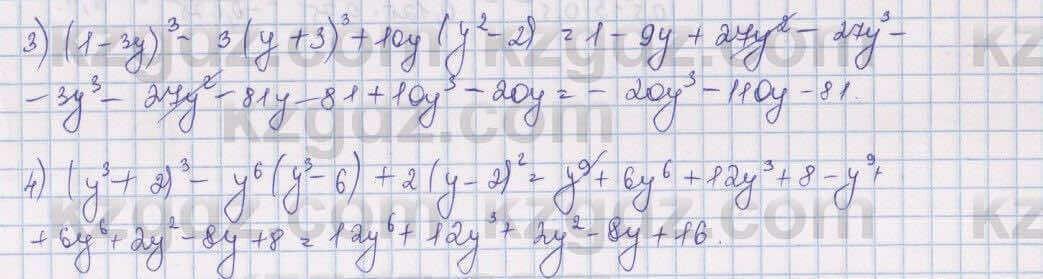 3) (1-3y)³ - 3(y+3)³ + 10y(y²-2) = 1 - 9y + 27y² - 27y³ -
- 3y³ - 27y² - 81y - 81 + 10y³ - 20y = - 20y³ - 110y - 81.
4) (y³+2)³ - y⁶(y³-6) + 2(y-2)² = y⁹ + 6y⁶ + 12y³ + 8 - y⁹ +
+ 6y⁶ + 2y² - 8y + 8 = 12y⁶ + 12y³ + 2y² - 8y + 16.
kzgdz.com